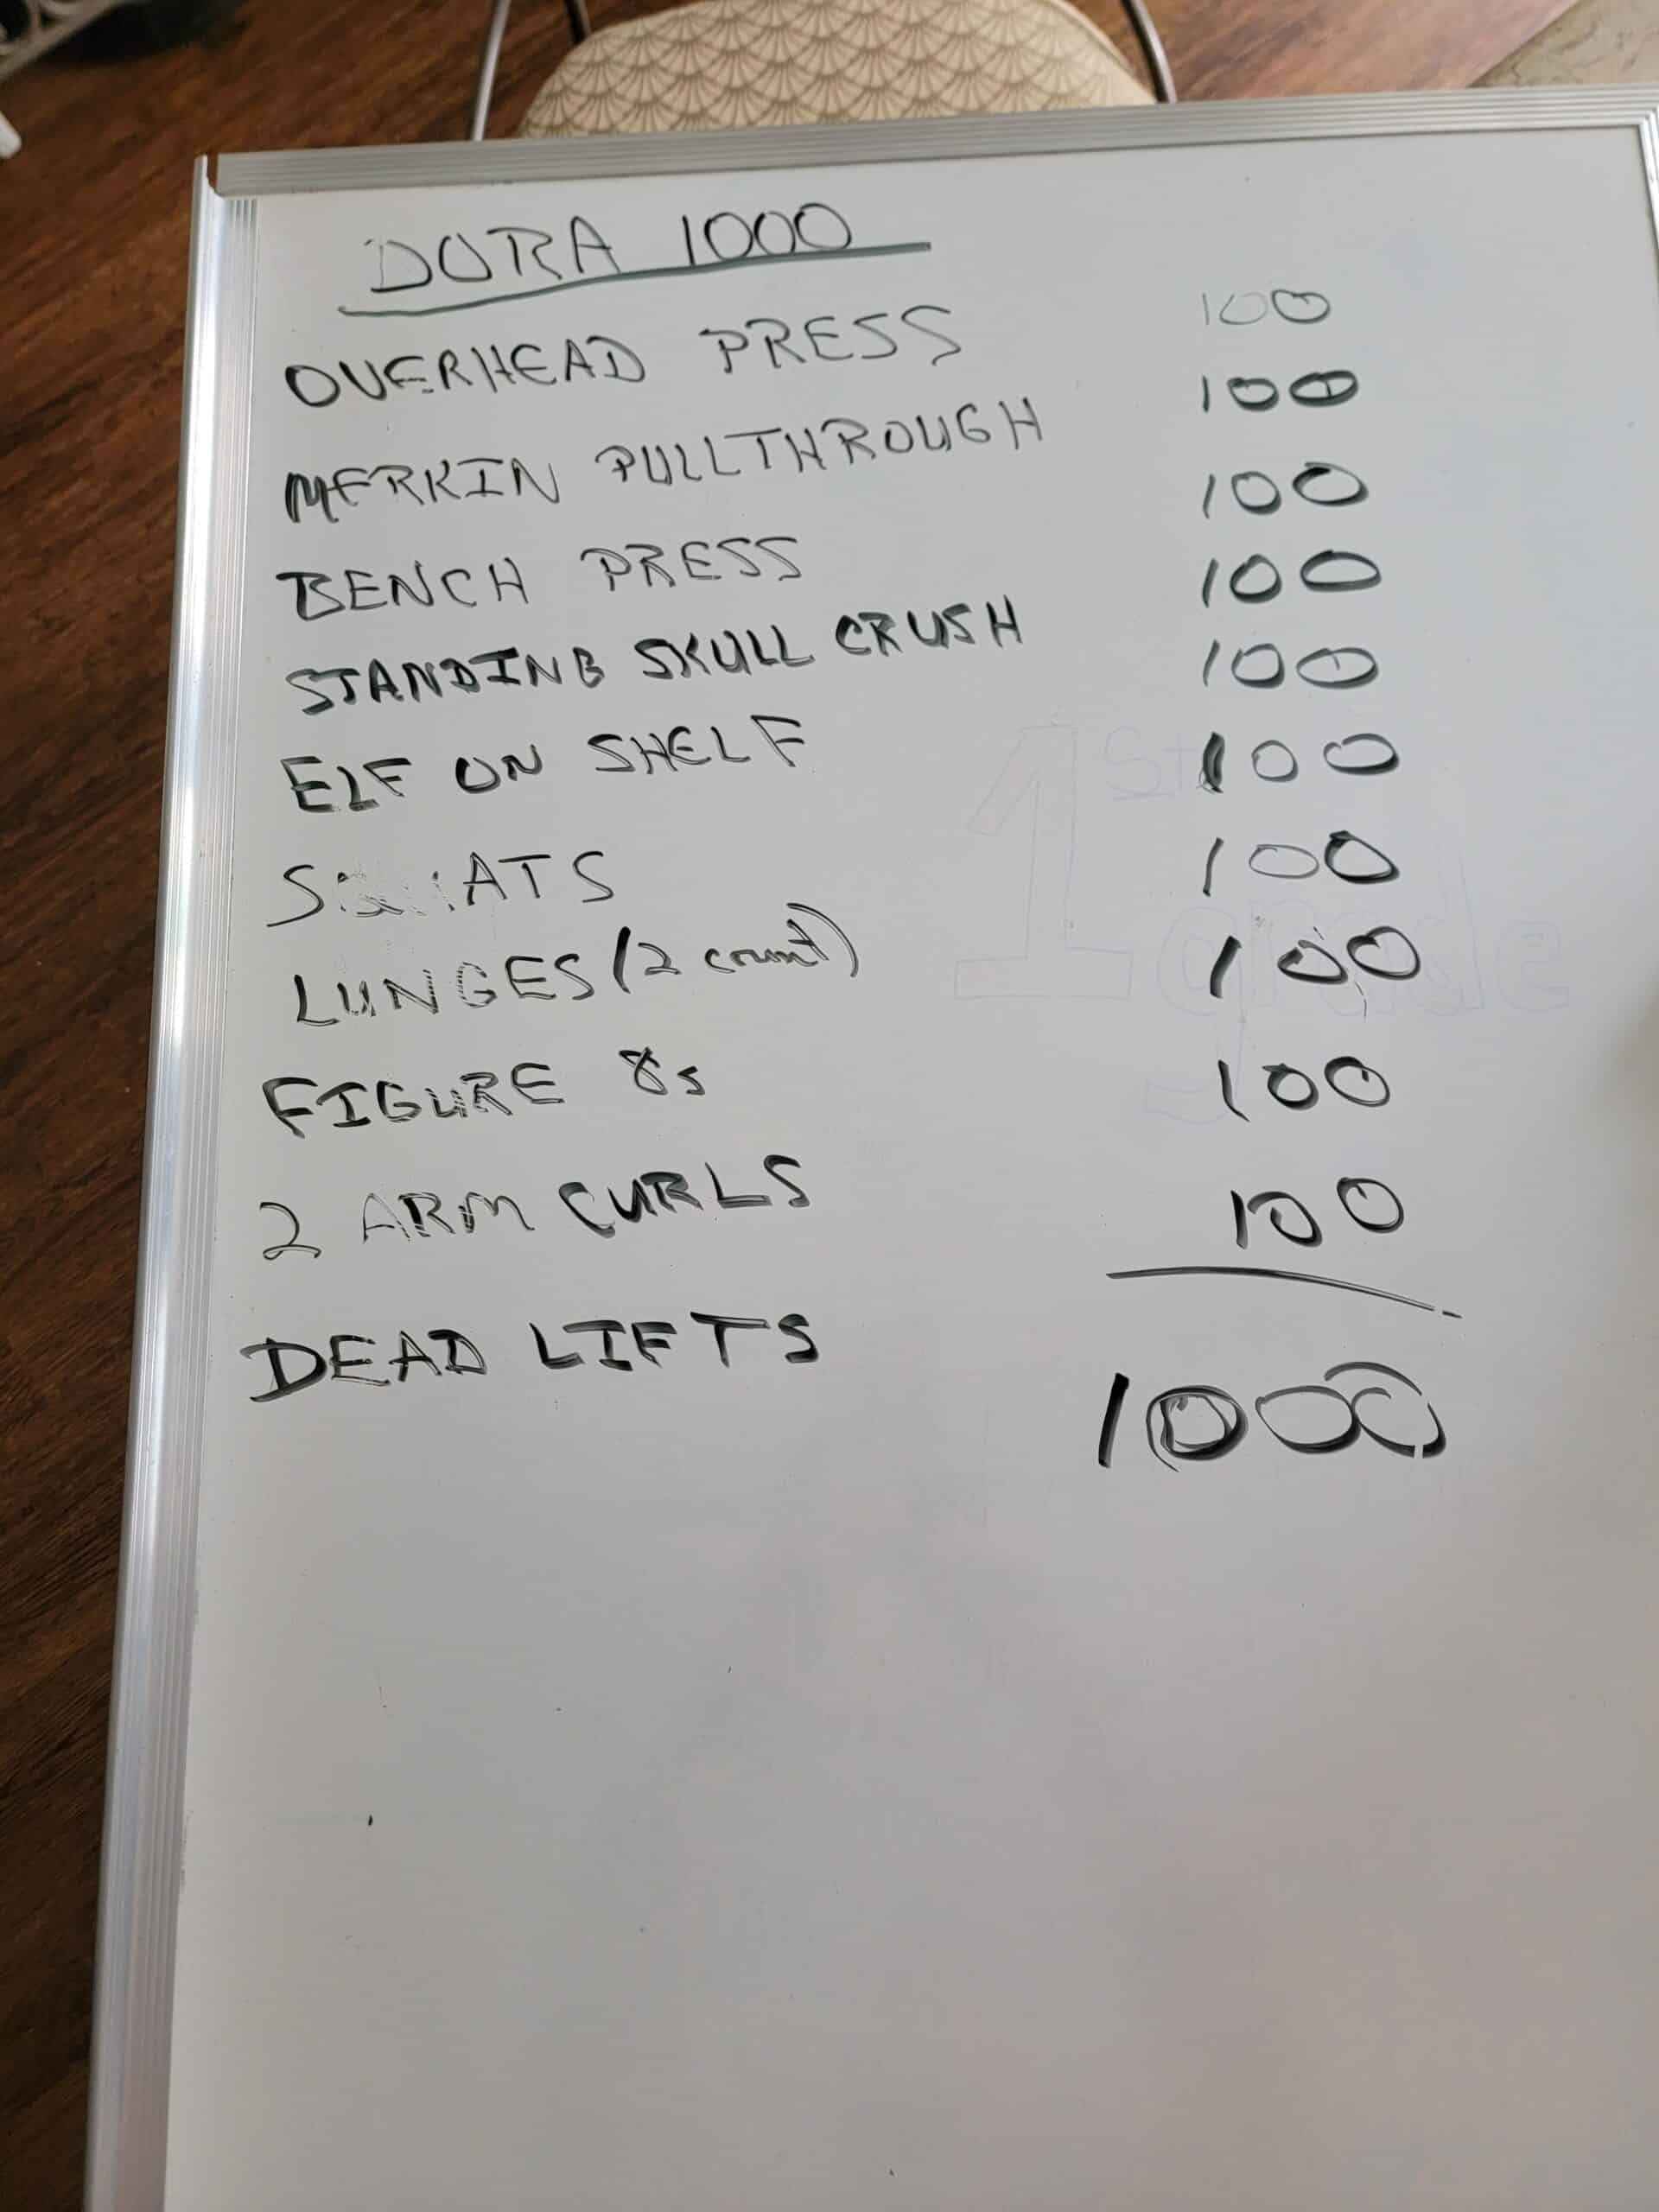 DORA 1000
OVERHEAD PRESS 100
MERKIN PULLTHROUGH 100
BENCH PRESS 100
STANDING SKULL CRUSH 100
ELF ON SHELF 100
SQUATS 100
LUNGES (2 count) 100
FIGURE 8s 100
2 ARM CURLS 100
DEAD LIFTS 100
1000
1st
grade